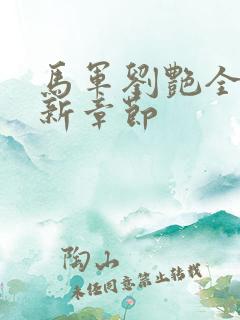 馬軍劉艷全
新章節
陶山
未经同意禁止转载